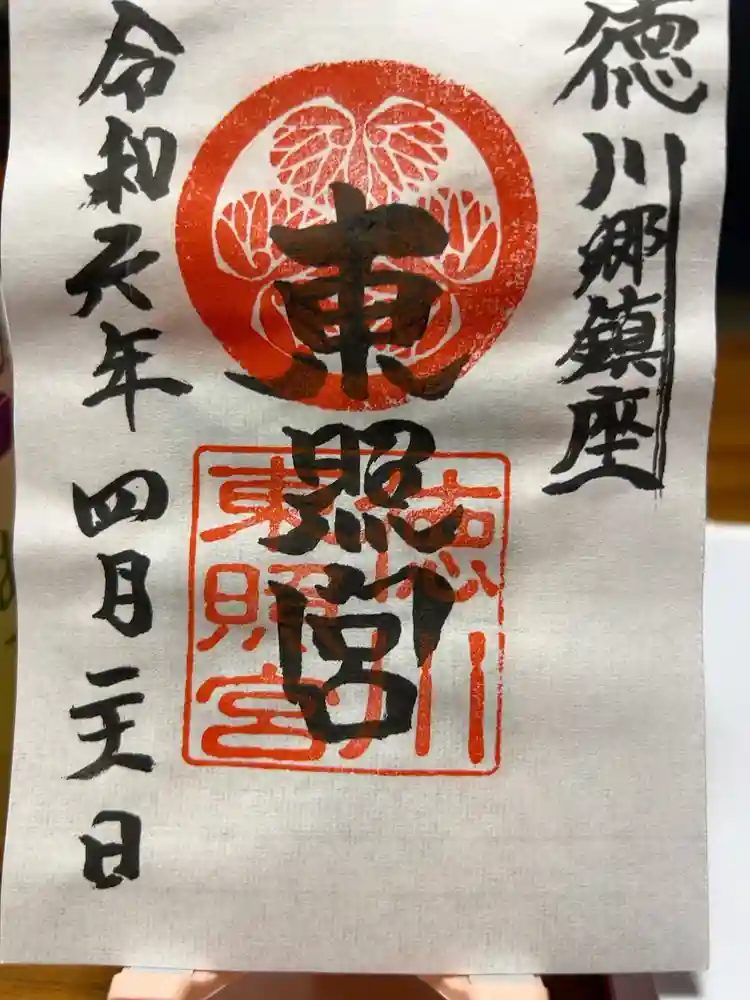 徳川郷鎮座
東照宮
徳川
東照宮
令和元年四月二日